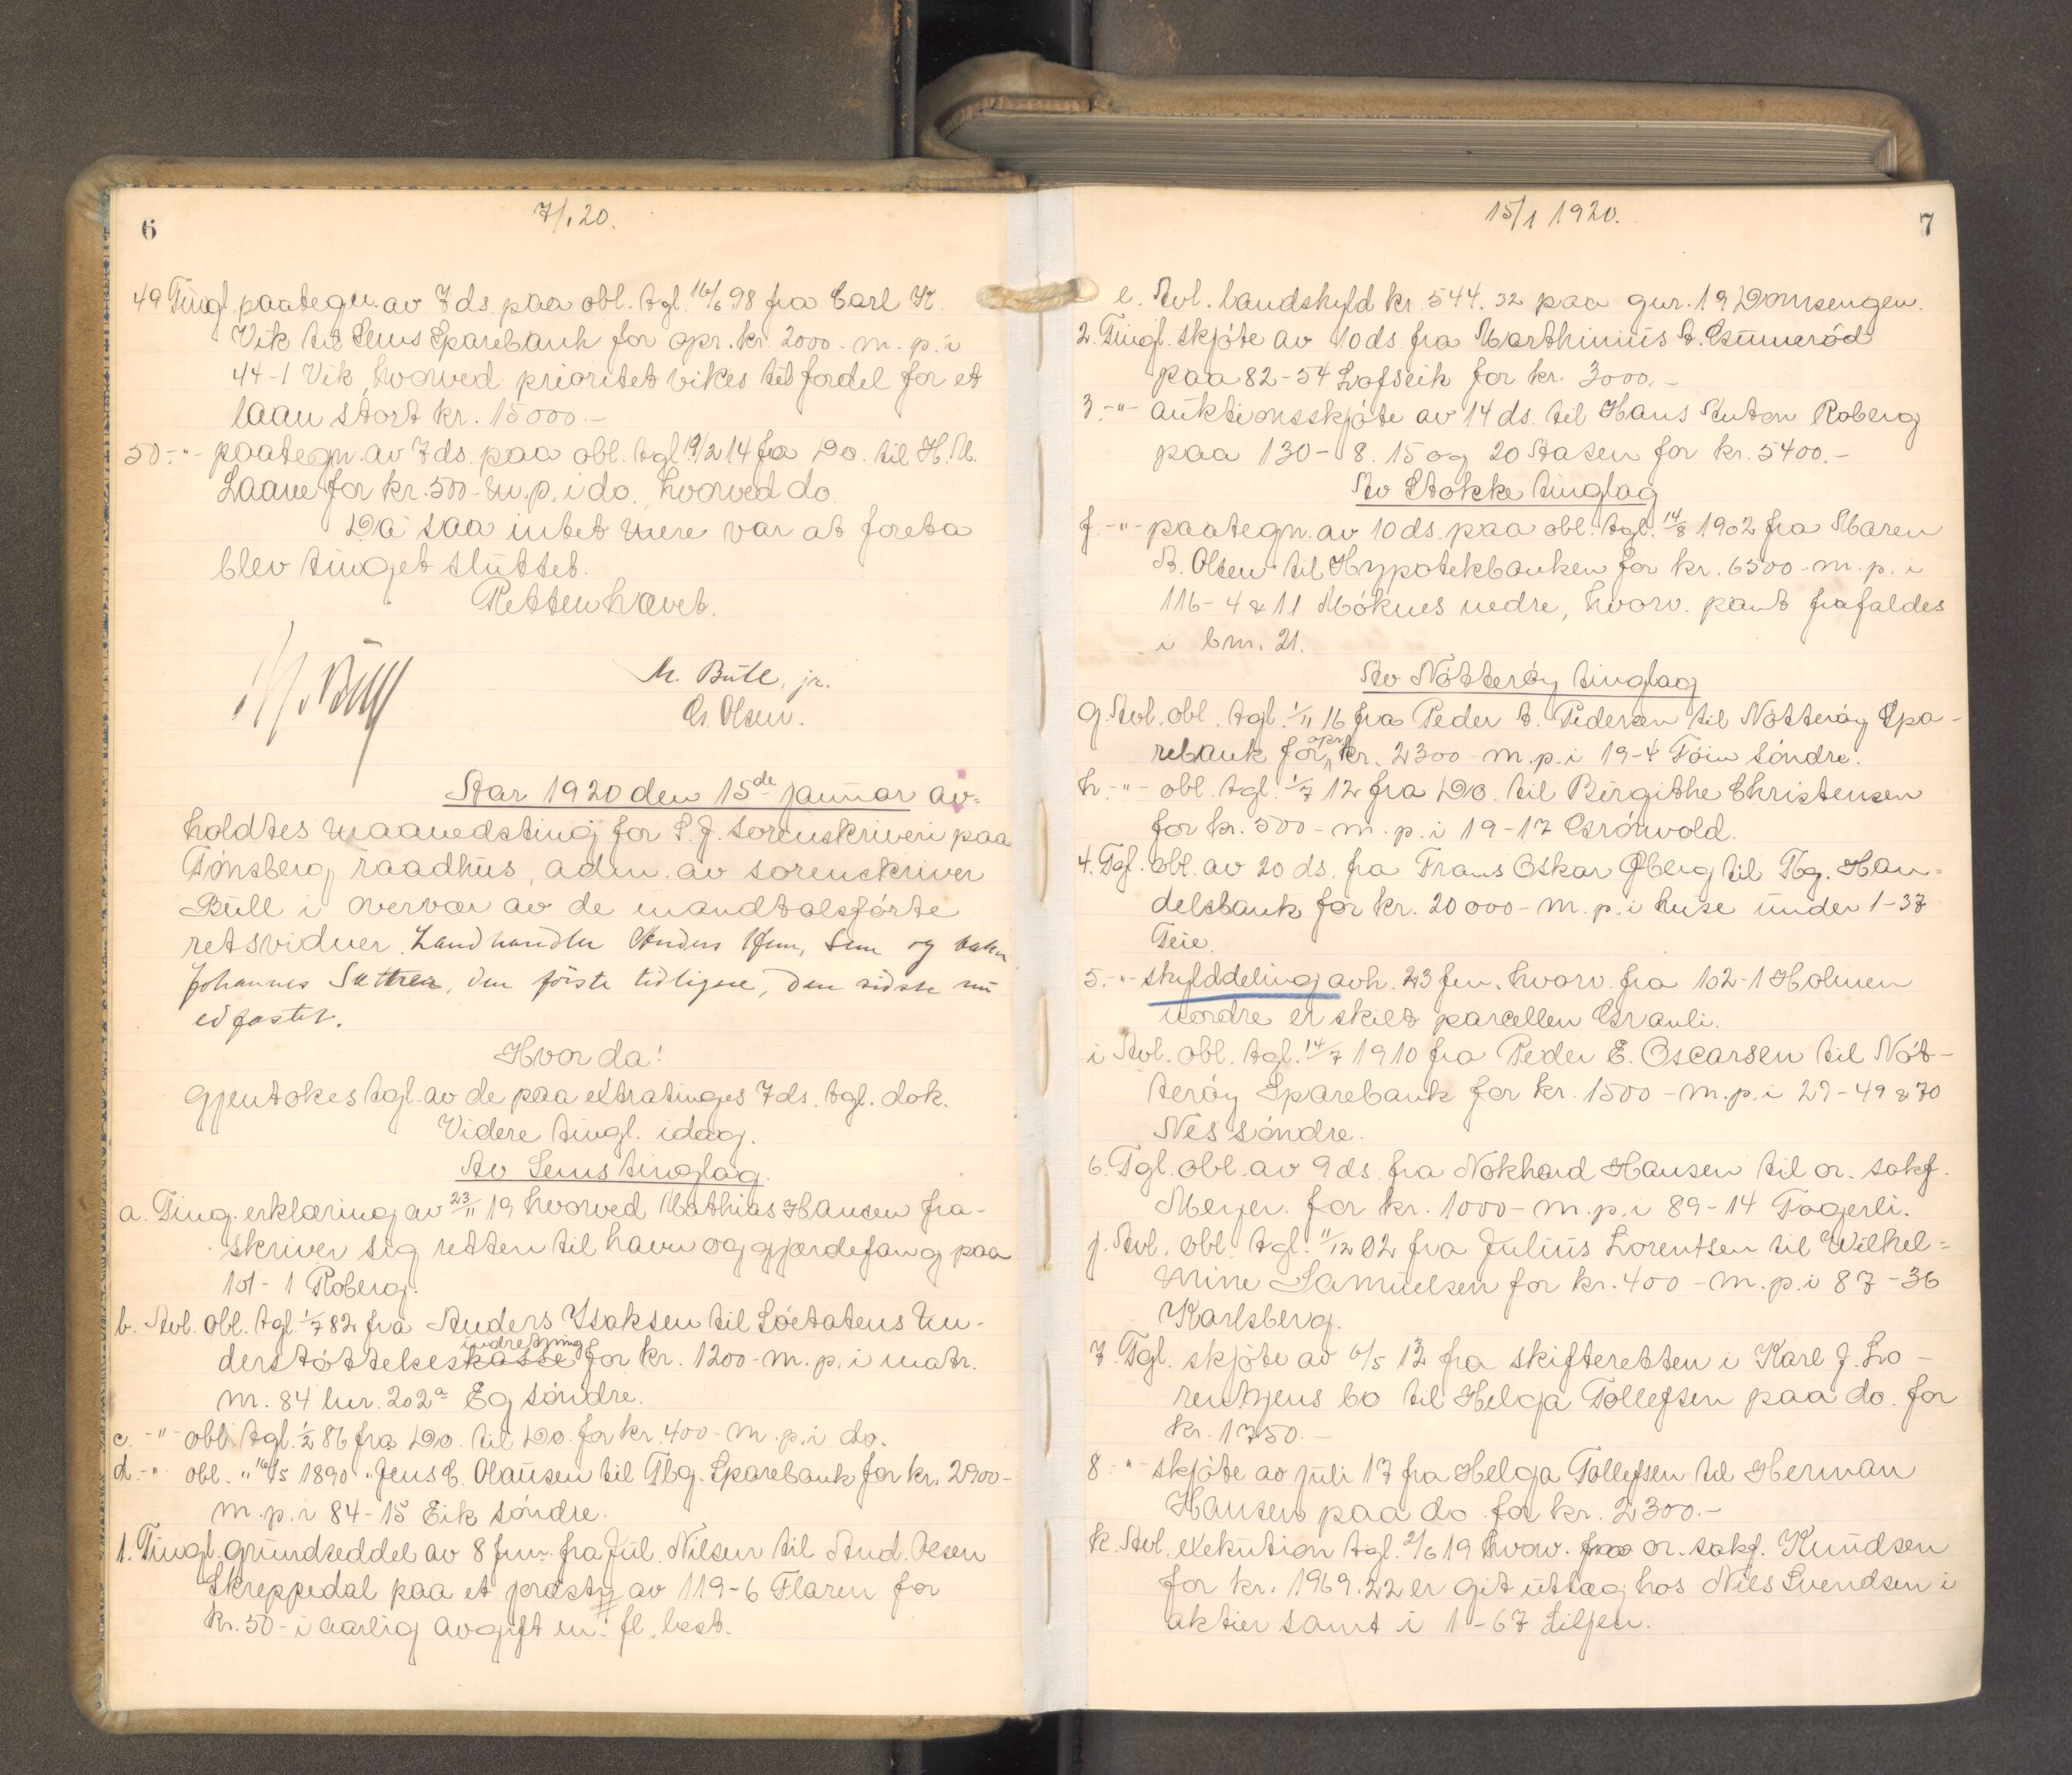 6
7/1 20.
49 Tingl. paategn. av 7 ds. paa obl. tgl. 16/6 98 fra Carl K.
Vik til Sems Sparebank for opr. kr. 2000.- m. p. i
44-1 Vik, hvorved prioritet vikes til fordel for et
laan stort kr. 15000.-
50.-"- paategn. av 7 ds. paa obl. tgl. 19/2 14 fra Do. til H. A.
Laane for kr. 500.- m. p. i do. hvorved do.
Da saa intet mere var at foreta
blev tinget sluttet.
Retten hævet.
M. Bull, jr.
O. Olsen.
Aar 1920 den 15de januar av-
holdtes maanedsting for S. J. sorenskriveri paa
Tönsberg raadhus, adm. av sorenskriver
Bull i overvær av de mandtalsförte
retsvidner Landhandler Anders Sem, Sem og
Johannes Sættres, den förste tidligere, den sidste nu
edfæstet.
Hvor da!
gjentokes tgl. av de paa extratinget 7 ds. tgl. dok.
Videre tingl. idag.
Av Sems tinglag.
a. Ting. erklæring av 23/11 19 hvorved Mathias Hansen fra-
skriver sig retten til havn og gjærdefang paa
101-1 Roberg.
b. Avl. obl. tgl. 1/7 82 fra Anders Isaksen til Söetatens Un-
derstöttelseskasse indretning for kr. 1200.- m. p. i matr.
nr. 84 lnr. 202a Eg söndre.
c. -"- obl. tgl. 1/2 86 fra Do. til Do. for kr. 400.- m. p. i do.
d. -"- obl. " 16/5 1890 " Jens C. Olausen til Tbg. Sparebank for kr. 2900.-
m. p. i 84-15 Eik söndre.
1. Tingl. grundseddel av 8 jun. fra Jul. Nilsen til And. Olsen
Skreppedal paa et jordsty av 119-6 Flaren for
kr. 50.- i aarlig avgift m. fl. best.
15/1 1920.
7
e. Avl. landskyld kr. 544.32 paa gnr. 19 Domsengen.
2. Tingl. skjöte av 10 ds. fra Marthinius A. Gunneröd
paa 82-54 Lofseik for kr. 3000.-
3.-"- auktionsskjöte av 14 ds. til Hans Anton Roberg
paa 130-8. 15 og 20 Aasen for kr. 5400.-
Av Stokke tinglag
f. -"- paategn. av 10 ds. paa obl. tgl. 14/8 1902 fra Maren
A. Olsen til Hypotekbanken for kr. 6500.- m. p. i
116-4 & 11 Möknes nedre, hvorv. pant frafaldes
i bnr. 21.
Av Nötteröy tinglag
g. Avl. obl. tgl. 1/11 16 fra Peder A. Pedersen til Nötteröy Spa-
rebank for opr. kr. 2300.- m. p. i 19-4 Föin söndre.
h. -"- obl. tgl. 1/7 12 fra Do. til Birgithe Christensen
for kr. 500.- m. p. i 19-17 Grönvold.
4. Tgl. obl. av 20 ds. fra Frans Oskar Öberg til Tbg. Han-
delsbank for kr. 20000.- m. p. i huse under 1-37
Teie.
5. -"- skylddeling avh. 23 jun. hvorv. fra 102-1 Holmen
nordre er skilt parcellen Granli.
i Avl. obl. tgl. 14/7 1910 fra Peder E. Oscarsen til Nöt-
teröy Sparebank for kr. 1500.- m. p. i 27-49 & 70
Nes söndre.
6. Tgl. obl. av 9 ds. fra Nokhard Hansen til or. sakf.
Meyer. for kr. 1000.- m. p. i 89-14 Fagerli.
j. Avl. obl. tgl. 11/12 02 fra Julius Lorentsen til Wilhel-
mine Samuelsen for kr. 400.- m. p. i 87-36
Karlsberg.
7. Tgl. skjöte av 6/5 13 fra skifteretten i Karl J. Lo-
rentzens bo til Helga Tollefsen paa do. for
kr. 1750.-
8.-"- skjöte av juli 17 fra Helga Tollefsen til Herman
Hansen paa do for kr. 2300.-
k. Avl. exekution tgl. 2/6 19 hvorv. fra or. sakf. Knudsen
for kr. 1969.22 er git utlæg hos Nils Svendsen i
aktier samt i 1-67 Liljen.